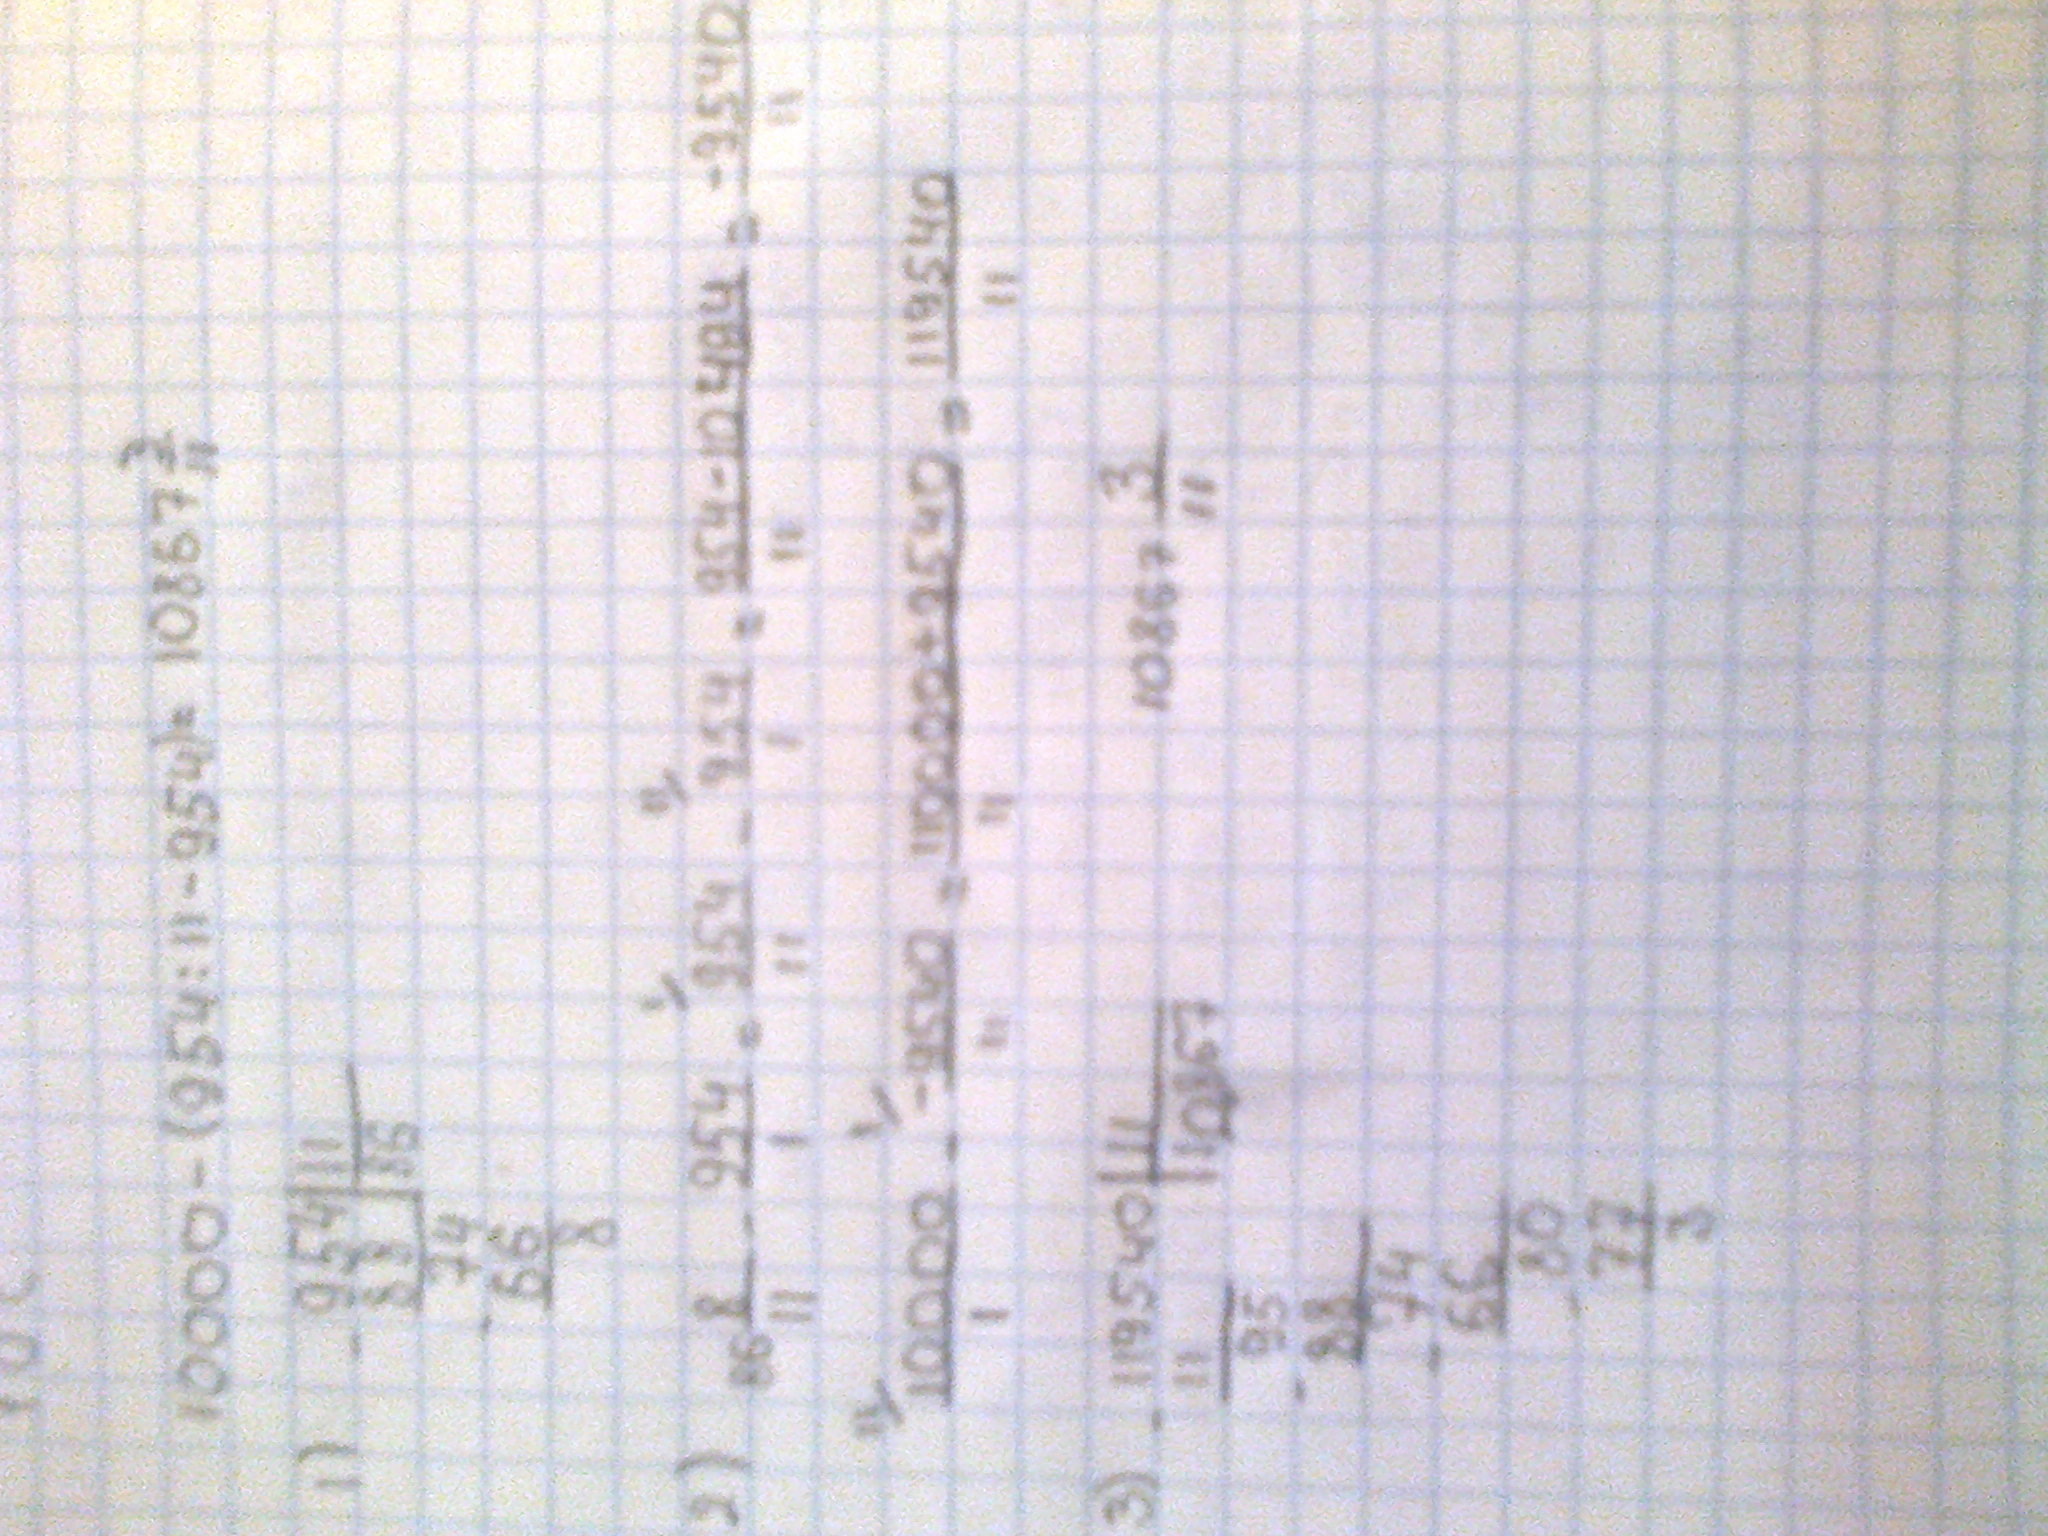 10000 - (954 : 11 - 954) = 10867 3/11
1) - 954 | 11
88 | 86
74
- 66
8
2) 86 8/11 - 954/1 = 954/11 - 954/1 = 954 - 10494/11 = -9540/11
10000/1 - -9540/11 = 110000+9540/11 = 119540/11
3) - 119540 | 11
11 | 10867
95
- 88
74
- 66
80
- 77
3
10867 3/11